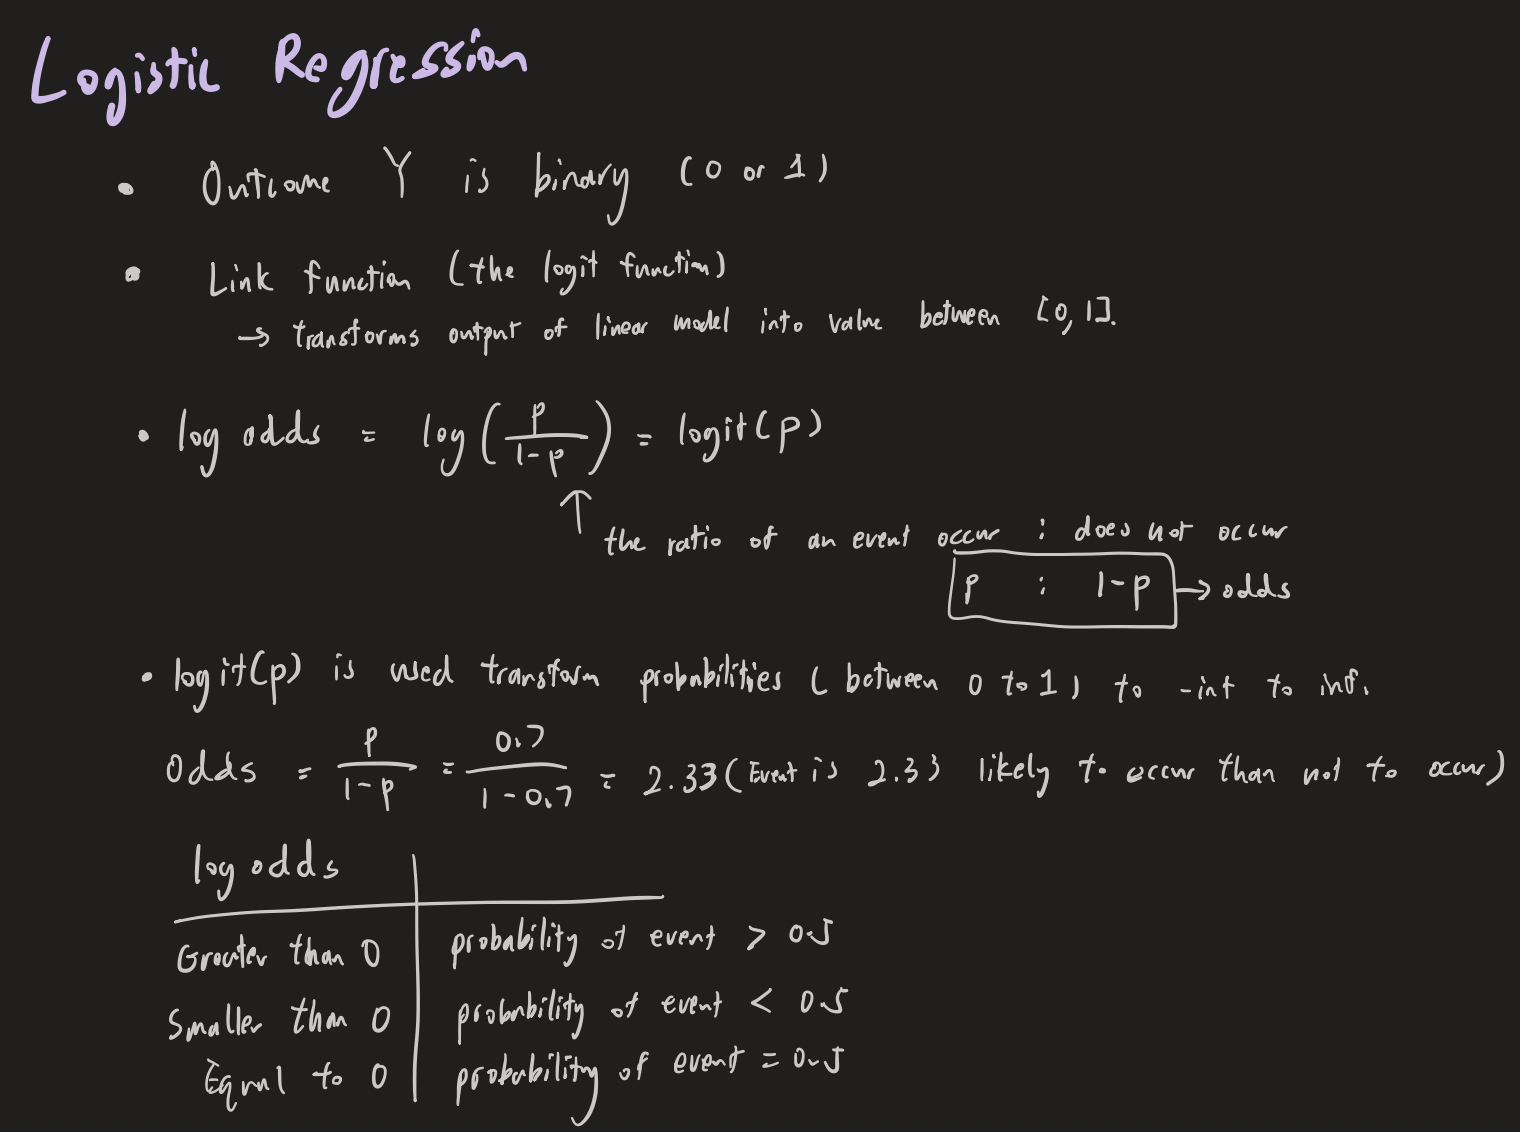 Logistic Regression
• Outcome Y is binary (0 or 1)
• Link function (the logit function)
→ transforms output of linear model into value between [0,1].
• log odds = log(p/1-p) = logit(p)
↑ the ratio of an event occur : does not occur
p : 1-p → odds
• logit(p) is used transform probabilities (between 0 to 1) to -inf to inf.
Odds = p/1-p = 0.7/1-0.7 = 2.33 (Event is 2.33 likely to occur than not to occur)
log odds
Greater than 0 probability of event > 0.5
Smaller than 0 probability of event < 0.5
Equal to 0 probability of event = 0.5